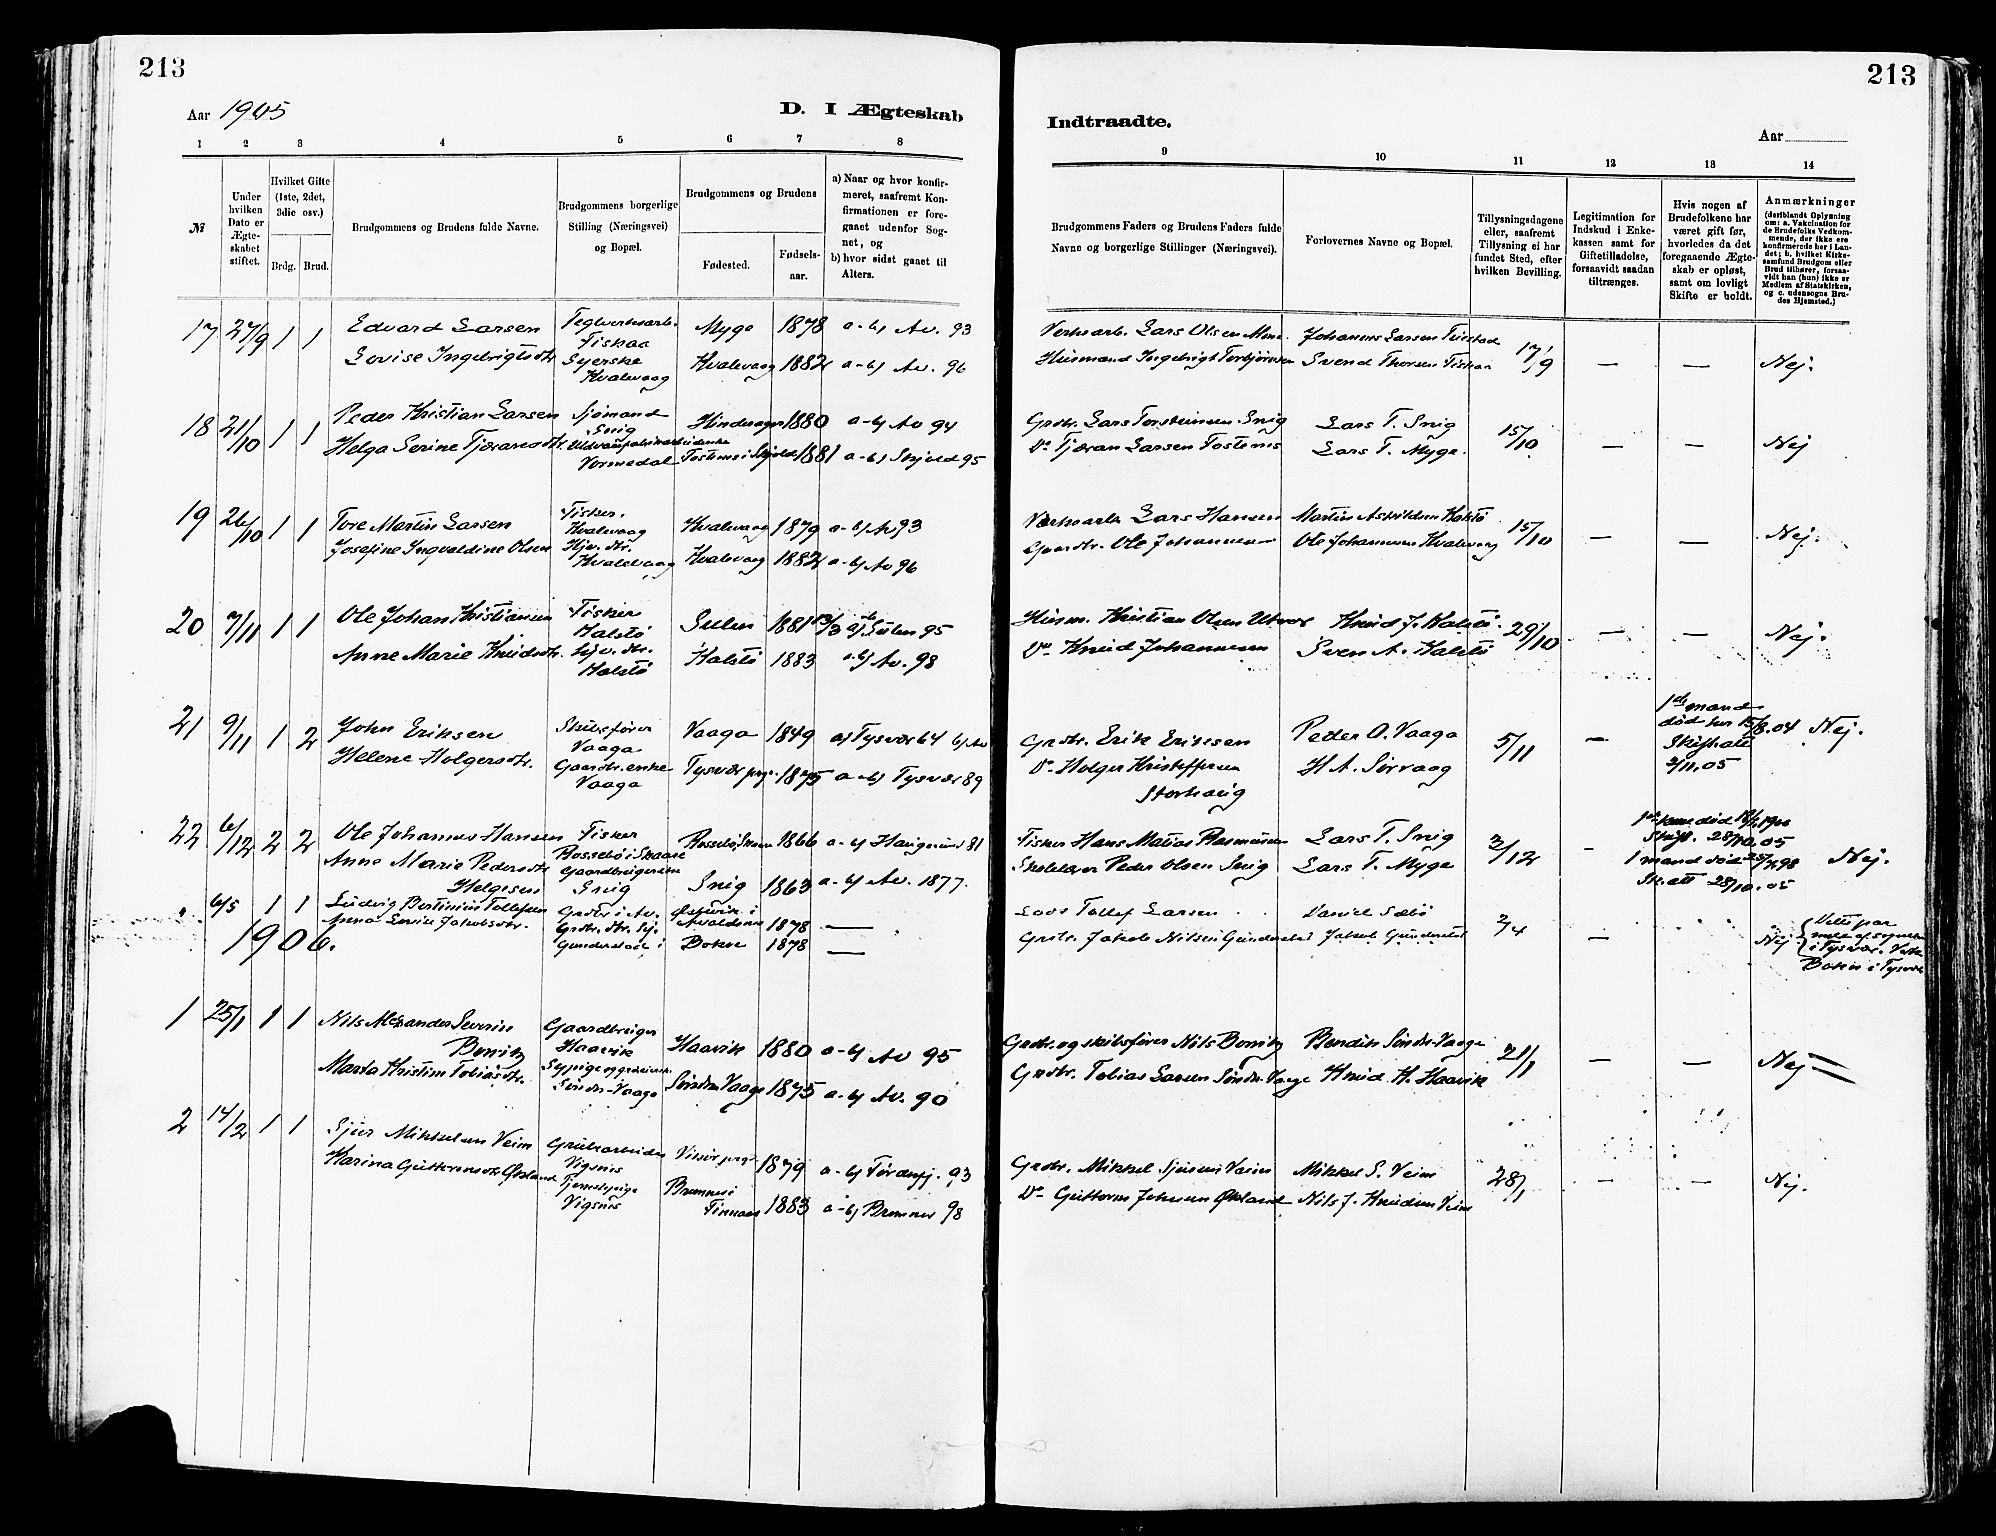 213
213
Aar 1905
D. I Ægteskab
Indtraadte.
Aar
1 2 3 4 5 6 7 8
9 10 11 12 13 14
№
Under hvilken Dato er Ægteskabet stiftet.
Hvilket Gifte (1ste, 2det, 3die osv.)
Brdg. Brud.
Brudgommens og Brudens fulde Navne.
Brudgommens borgerlige Stilling (Næringsvei) og Bopæl.
Brudgommens og Brudens
Fødested.
Fødselsaar.
a) Naar og hvor konfirmeret, saafremt Konfirmationen er foregaaet udenfor Sognet, og
b) hvor sidst gaaet til Alters.
Brudgommens Faders og Brudens Faders fulde Navne og borgerlige Stillinger (Næringsvei).
Forlovernes Navne og Bopæl.
Tillysningsdagene eller, saafremt Tillysning ei har fundet Sted, efter hvilken Bevilling.
Legitimation for Indskud i Enkekassen samt for Giftetilladelse, forsaavidt saadan tiltrænges.
Hvis nogen af Brudefolkene har været gift før, hvorledes da det foregaaende Ægteskab er opløst, samt om lovligt Skifte er holdt.
Anmærkninger
(deriblandt Oplysning om: a. Vakcination for de Brudefolks Vedkommende, der ikke ere konfirmerede her i Landet; b. hvilket Kirkesamfund Brudgom eller Brud tilhører, forsaavidt han (hun) ikke er Medlem af Statskirken, og c. udensogns Brudes Hjemsted.)
17 27/9 1 1 Edvard Larsen Teglverksarb. Fiskaa Myge 1878 a-b) Av. 93
Lovise Ingebrigtsdtr. Syerske Kvalevaag Kvalevaag 1882 a-b) Av. 96
Verksarb. Lars Olsen Johannes Larsen 17/9 — — Nej.
Husmand Ingebrigt Torbjørnsen Svend Thorsen Fiskaa
18 21/10 1 1 Peder Kristian Larsen Sjømand Snig 1880 a-b) Av 94
Helga Serine Tjæransdtr. Vormedal Fosteness i Skjold 1881 a-b) Skjold 95
Grdbr. Lars Torsteinsen Snig Lars T. Snig 15/10 — — Nej
Do Tjæran Larsen Fostenes Lars T. Myge.
19 26/10 1 1 Tore Martin Larsen Fisker. Kvalevaag Kvalevaag 1879 a-b) Av 93
Josefine Ingvaldine Olsen Hjv. dtr. Kvalevaag Kvalevaag 1882 a-b) Av 96
Verksarb Lars Hansen Martin Askildsen Kalstø 15/10 — — Nej.
Gaardbr. Ole Johannesen Ole Johannesen Kvalevaag
20 7/11 1 1 Ole Johan Kristiansen Fisker Kalstø Sulen 1881 13/3 a) b) Sulen 95
Anne Marie Knudsdtr. Hjv. dtr. Kalstø Kalstø 1883 a-b) Av. 98
Husm. Kristian Olsen Knud J. Kalstø. 29/10 — — Nej.
Do Knud Johannesen Sven A. Kalstø
21 9/11 1 2 John Eriksen Skibsfører Vaaga Vaaga 1849 a) Tysvær 64 b) Av
Helene Holgersdtr. Gaardbr. enke Vaaga Tysvær prgj. 1875 a-b) Tysvær 89
Grdbr. Erik Eriksen Peder O. Vaaga 5/11 — 1ste mand død her 15/8.04 Skifteatt 2/11.05 Nej.
Do. Holger Kristoffersen Storhaug H A. Sørvaag
22 6/12 2 2 Ole Johannes Hansen Fisker Rossebø i Skaare Rossebø, Skaare 1866 a-b) Haugesund 81
Anne Marie Pedersdtr. Helgesen Gaardbrugerenke Snig Snig 1863 a-b) Av. 1877.
Fisker Hans Matias Rasmussen Lars T. Snig 3/12 - 1ste kone død 1900 Skift. 28/10.05
Skolelærer Peder Olsen Snig Lars T. Myge 1 mand død 98 Sk. att 28/10.05 Nej.
" 6/5 1 1 Ludvig Bertinius Tollefsen Grdbr i Av. Avaldsnes 1878 —
Anna Serine Jakobsdtr. Grdbr. dtr. Gunderstad i Bokn 1878 —
Tollef Larsen Daniel Sæbø 2/4 —
Grdbr. Jakob Nilsen Gunderstad Jakob Gunderstad Nej Dette par af sognepr. i Tysvær. Bokn i Tysvær
1906.
1 25/1 1 1 Nils Alexander Severin Bonitz Gaardbruger Haavik Haavik 1880 a-b) Av 95
Marta Kristine Tobiasdtr. Søndre-Vaage Søndre Vaage 1875 a-b) Av. 90
Grdbr. og skibsfører Nils Bonitz Bendik Søndre-Vaage 21/1 — — Nej
Grdbr. Tobias Larsen Søndre Vaage Knud H. Haavik
2 14/2 1 1 Sjur Mikkelsen Veim Grubearbeider Vigsnes 1879 a-b) Førdesfj. 93
Karina Guttormsdtr Økland Tjenestepige Vigsnes Bremnes i Finnaas 1883 a-b) Bremnes 98
Grdbr. Mikkel Sjursen Veim Mikkel S. Veim 28/1 — — Nej.
Do Guttorm Johnsen Økland Nils J. Knudsen Veim